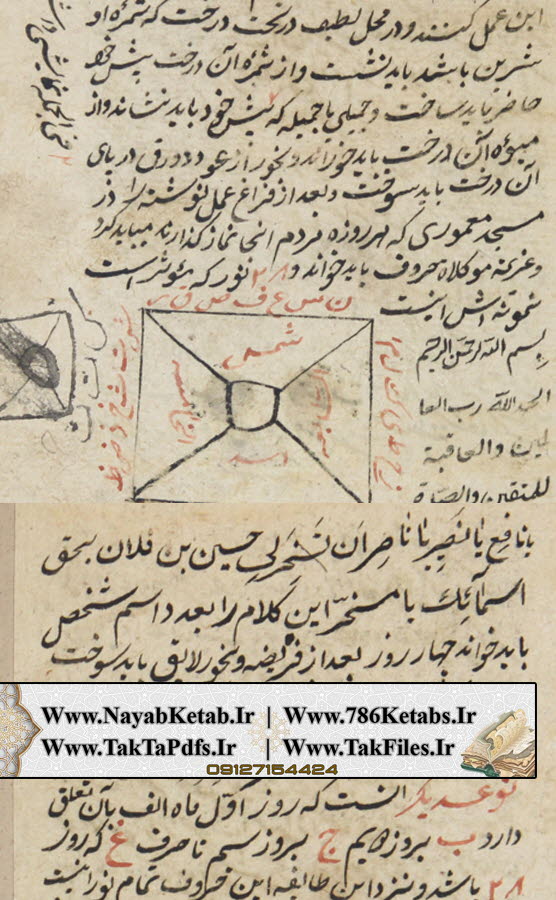 این عمل کنند و در محل لطیف در تحت درخت که ثمره او
شیرین باشد باید نشست و از ثمره آن درخت پیش خود
حاضر باید ساخت و جمیلی یا جمیله که پیش خود باید نشاند و از
میوه آن درخت باید خوراند و بخور از عود و ورق در پای
آن درخت باید سوخت و بعد از فراغ عمل نوشته را در
مسجد معموری که هر روزه مردم آنجا نماز گذارند میباید کرد
و عزیمه موکلاة حروف باید خواند و ٢٨ نور که مؤثر است
نمونه اش اینست
ن س ع ف ص ق ر
بسم الله الرحمن الرحیم
الحمد لله رب العا
لمین والعاقبة
للمتقین والصلوة
شمس
یا نافع یا نصیر یا ناصر ان تسخر لی حسین بن فلان بحق
اسمائک یا مسخر این کلام را بعدد اسم شخص
باید خواند چهار روز بعد از فریضه و بخور لایق باید سوخت
Www.NayabKetab.Ir | Www.786Ketabs.Ir
Www.TakTaPdfs.Ir | Www.TakFiles.Ir
09127154424
نوعدیگر آنست که روز اول ماه الف بآن تعلق
دارد ب بروز دویم ج بروز سیم تا حرف غ که روز
٢٨ باشد و نزد این طائفه این حروف تمام نورانیست